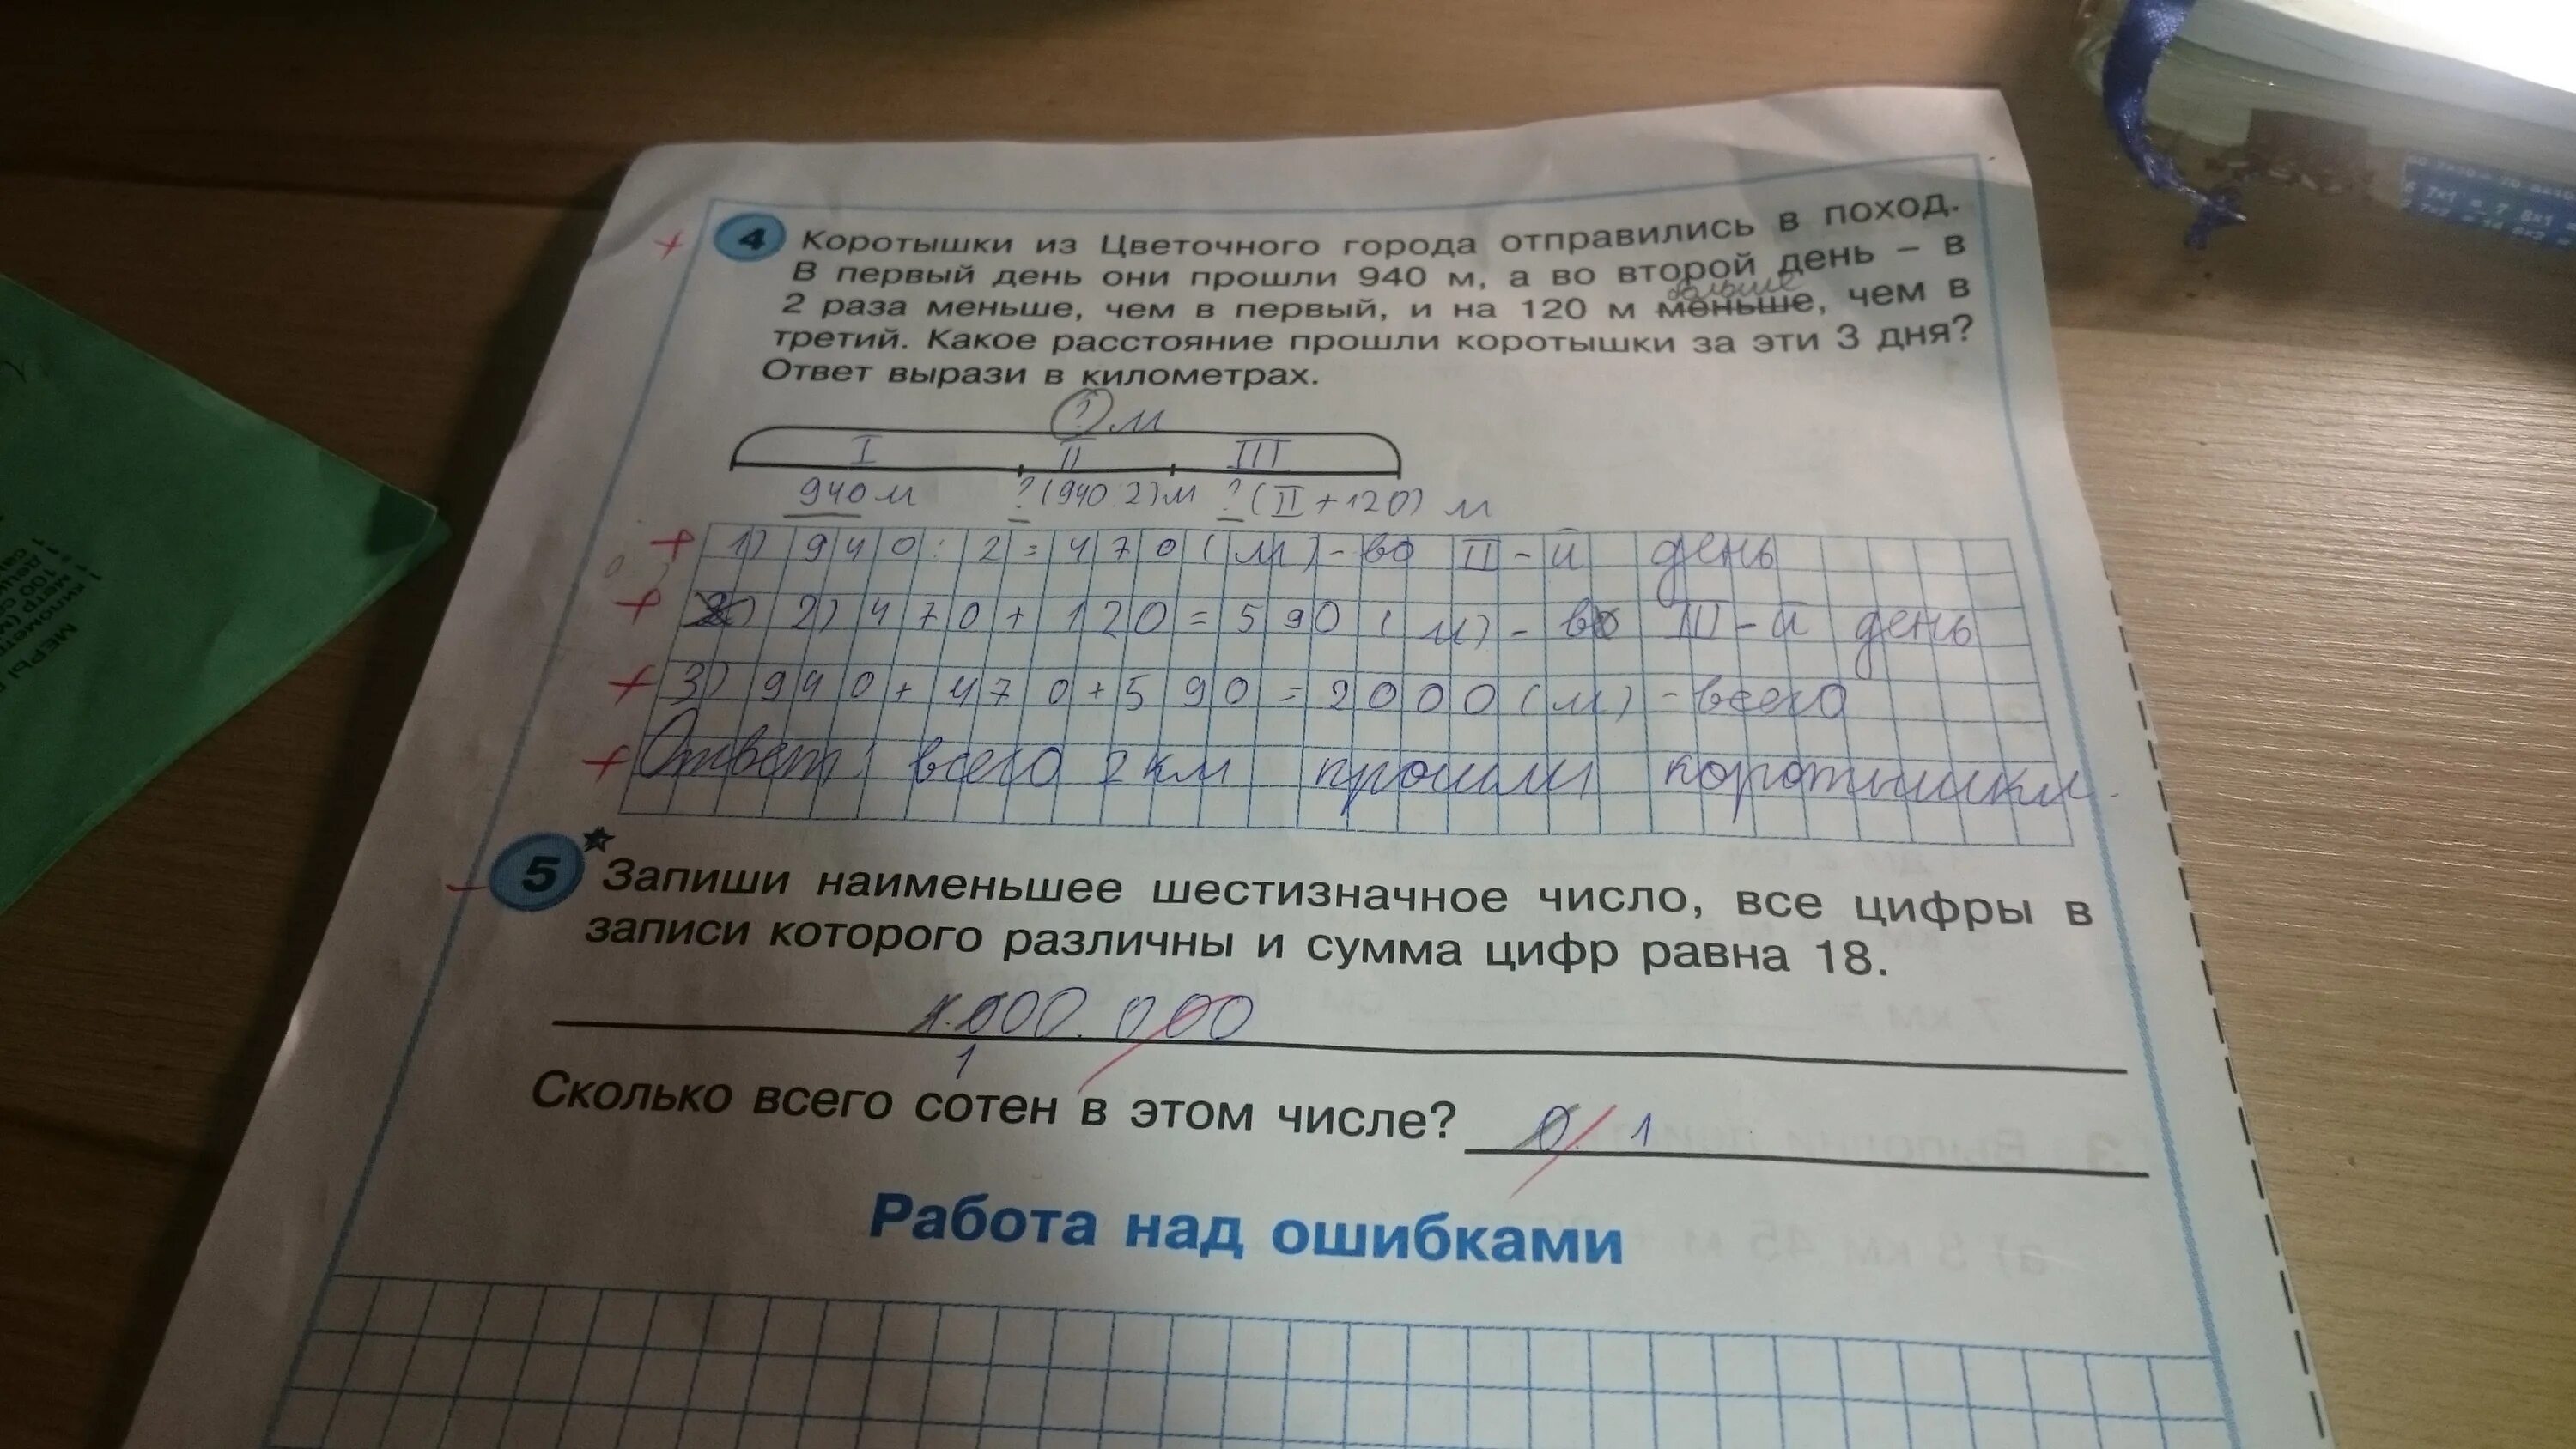 4 Коротышки из Цветочного города отправились в поход.
В первый день они прошли 940 м, а во второй день – в
больше
2 раза меньше, чем в первый, и на 120 м меньше, чем в
третий. Какое расстояние прошли коротышки за эти 3 дня?
Ответ вырази в километрах.
? м
I II III
940 м ? (940:2) м ? (II + 120) м
1) 940 : 2 = 470 (м) - во II - й день
2) 470 + 120 = 590 (м) - в III - й день
3) 940 + 470 + 590 = 2000 (м) - всего
Ответ: всего 2 км прошли коротышки.
5* Запиши наименьшее шестизначное число, все цифры в
записи которого различны и сумма цифр равна 18.
000.000
1
Сколько всего сотен в этом числе? 0. 1
Работа над ошибками